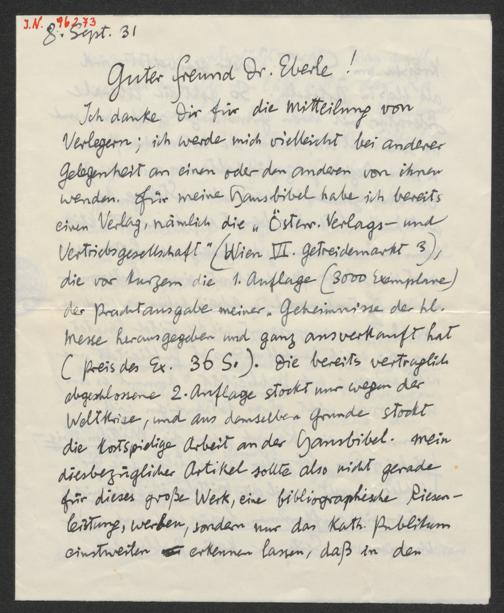 I.N. 96273
8. Sept. 31
Guter Freund Dr. Eberle!
Ich danke Dir für die Mitteilung von
Verlegern; ich werde mich vielleicht bei anderer
Gelegenheit an einen oder den anderen von ihnen
wenden. Für meine Hausbibel habe ich bereits
einen Verlag, nämlich die „Österr. Verlags- und
Vertriebsgesellschaft" (Wien VI. Getreidemarkt 3),
die vor kurzem die 1. Auflage (3000 Exemplare)
der Prachtausgabe meiner „Geheimnisse der hl.
Messe herausgegeben und ganz ausverkauft hat
(Preis des Ex. 36 S.). Die bereits vertraglich
abgeschlossene 2. Auflage stockt nur wegen der
Weltkrise, und aus demselben Grunde stockt
die kostspielige Arbeit an der Hausbibel. Mein
diesbezüglicher Artikel sollte also nicht gerade
für dieses große Werk, eine bibliographische Riesen-
leistung, werben, sondern nur das kath. Publikum
einstweilen erkennen lassen, daß in den